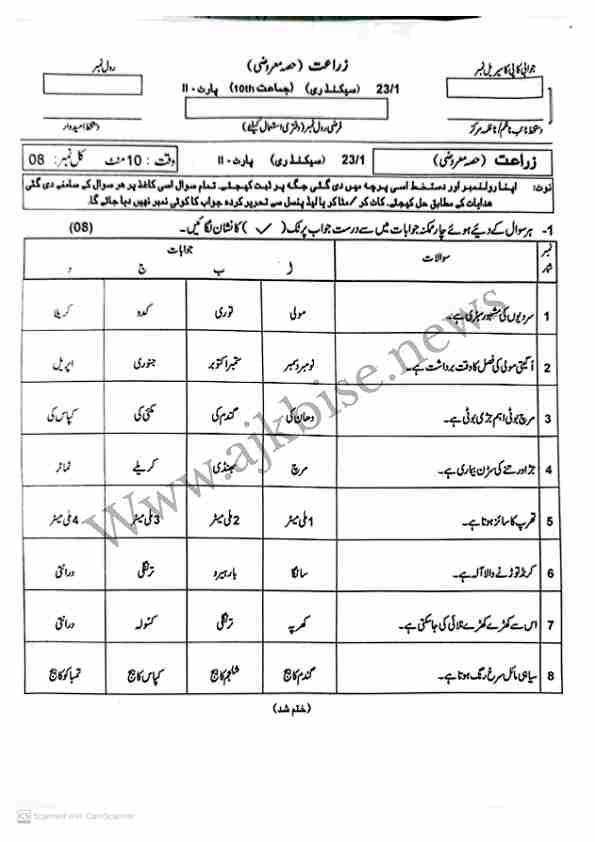 جوابی کاپی کا سیریل نمبر
زراعت (حصہ معروضی)
رول نمبر
23/1 (سیکنڈری) (جماعت 10th) پارٹ - II
دستخط نائب ناظم / ناظمہ مرکز
فرضی رول نمبر (دفتری استعمال کیلئے)
دستخط امیدوار
زراعت (حصہ معروضی) 23/1 (سیکنڈری) پارٹ - II وقت : 10 منٹ کل نمبر: 08
نوٹ: اپنا رولنمبر اور دستخط اسی پرچہ میں دی گئی جگہ پر ثبت کیجئے۔ تمام سوال اسی کاغذ پر ھر سوال کے سامنے دی گئی
ھدایات کے مطابق حل کیجئے۔ کاٹ کر / مٹا کر یا لیڈ پنسل سے تحریر کردہ جواب کا کوئی نمبر نہیں دیا جائے گا۔
1- ہر سوال کے دیئے ہوئے چار ممکنہ جوابات میں سے درست جواب پر ٹک ( ✓ ) کا نشان لگائیں۔ (08)
نمبر شمار سوالات جوابات
ا ب ج د
1 سردیوں کی مشہور سبزی ہے۔ مولی توری کدو کریلا
2 اگیتی مولی کی فصل کا وقت برداشت ہے۔ نومبر دسمبر ستمبر اکتوبر جنوری اپریل
3 مرچ بوٹی اہم جڑی بوٹی ہے۔ دھان کی گندم کی مکئی کی کپاس کی
4 جڑ اور تنے کی سڑن بیماری ہے۔ مرچ بھنڈی کریلے ٹماٹر
5 تھرپ کا سائز ہوتا ہے۔ 1 ملی میٹر 2 ملی میٹر 3 ملی میٹر 4 ملی میٹر
6 کرنڈ توڑنے والا آلہ ہے۔ سانگا بار ہیرو ترنگلی درانتی
7 اس سے کھڑے کھڑے نلائی کی جا سکتی ہے۔ کھرپہ ترنگلی کسولہ درانتی
8 سیاہی مائل سرخ رنگ ہوتا ہے۔ گندم کا بیج شلجم کا بیج کپاس کا بیج تمباکو کا بیج
(ختم شد)
www.ajkbise.news
CS Scanned with CamScanner